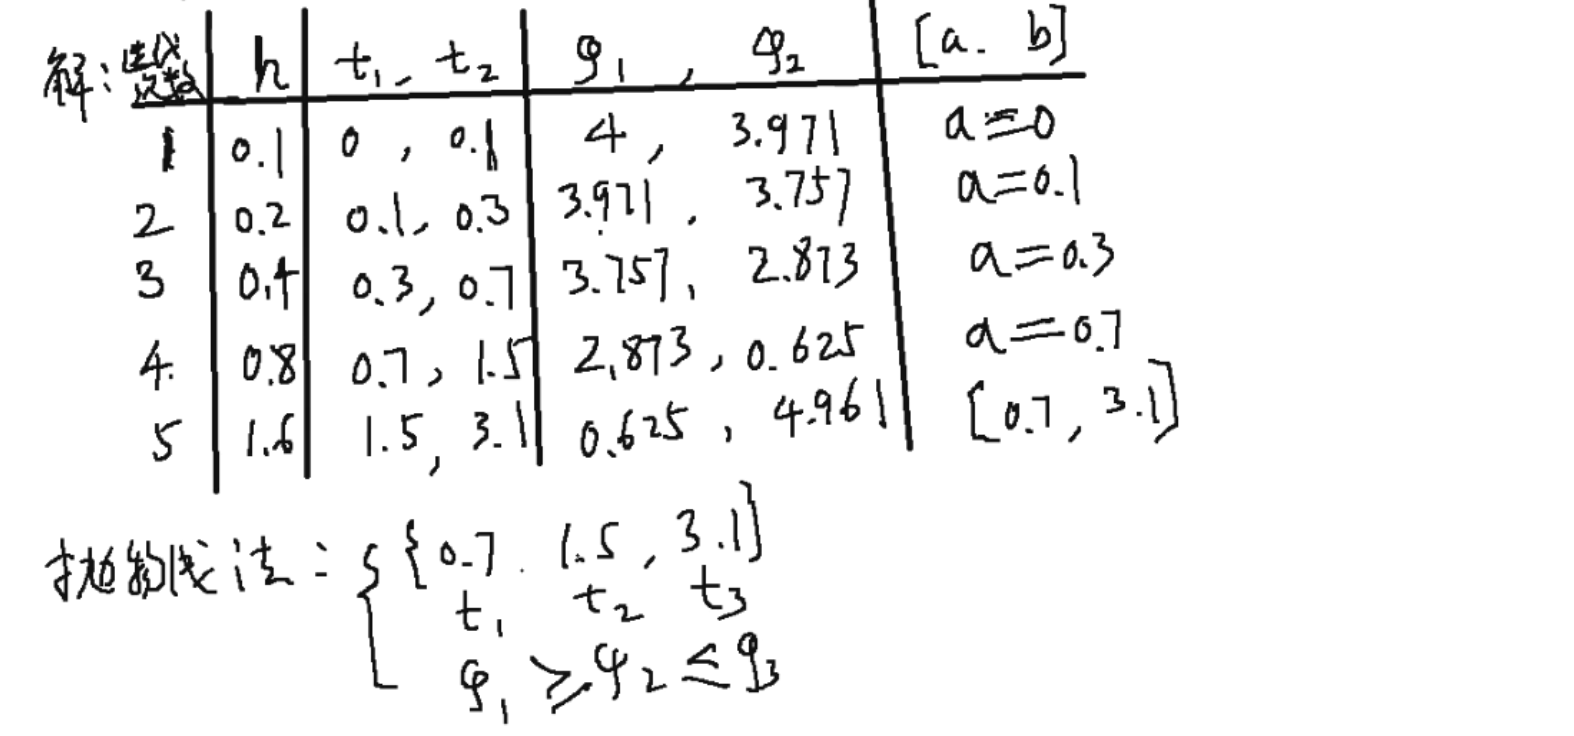 解：迭代次数 h t₁, t₂ φ₁, φ₂ [a. b]
1 0.1 0, 0.1 4, 3.971 a=0
2 0.2 0.1, 0.3 3.971, 3.757 a=0.1
3 0.4 0.3, 0.7 3.757, 2.873 a=0.3
4. 0.8 0.7, 1.5 2.873, 0.625 a=0.7
5 1.6 1.5, 3.1 0.625, 4.961 [0.7, 3.1]
抛物线法: { {0.7. 1.5, 3.1]
t₁ t₂ t₃
φ₁ ≥ φ₂ ≤ φ₃